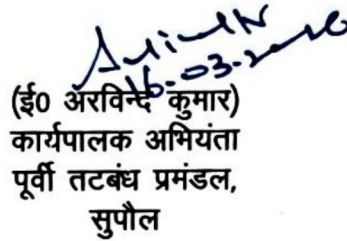 16-03-2026
(ई0 अरविन्द कुमार)
कार्यपालक अभियंता
पूर्वी तटबंध प्रमंडल,
सुपौल